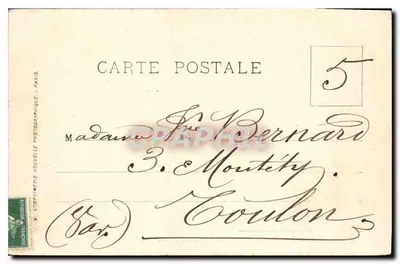 CARTE POSTALE
5
Madame Vve Bernard
3. Montéty.
Toulon
(Var)
IMPRIMERIE NOUVELLE PHOTOGRAPHIQUE - PARIS.